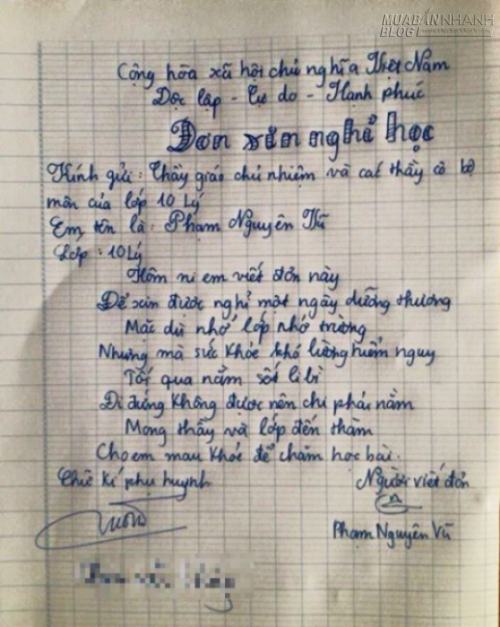 MUABANNHANH
BLOG
Cộng hòa xã hội chủ nghĩa Việt Nam
Độc lập - Tự do - Hạnh phúc
Đơn xin nghỉ học
Kính gửi: Thầy giáo chủ nhiệm và các thầy cô bộ
môn của lớp 10 Lý
Em tên là: Phạm Nguyên Vũ
Lớp: 10 Lý
Hôm ni em viết đơn này
Để xin được nghỉ một ngày dưỡng thương
Mặc dù nhớ lớp nhớ trường
Nhưng mà sức khỏe khó lường hiểm nguy
Tối qua nằm sốt li bì
Đi đứng không được nên chi phải nằm
Mong thầy và lớp đến thăm
Cho em mau khỏe để chăm học bài.
Chữ kí phụ huynh
Người viết đơn
Phạm Nguyên Vũ